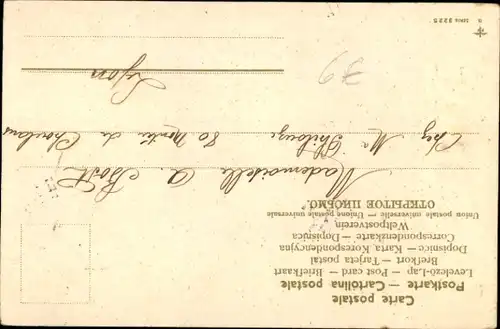 Carte postale
Postkarte — Cartolina postale
Levelező-Lap — Post card — Briefkaart
Brefkort — Tarjeta postal
Dopisnice — Karta Korespondencyjna
Correspondenzkarte — Dopisnica
Weltpostverein
Union postale universelle — Unione postale universale
ОТКРЫТОЕ ПИСЬМО.
Mademoiselle A.
Chez Mr 80 Montée de Choulans
Lyon
79
3225